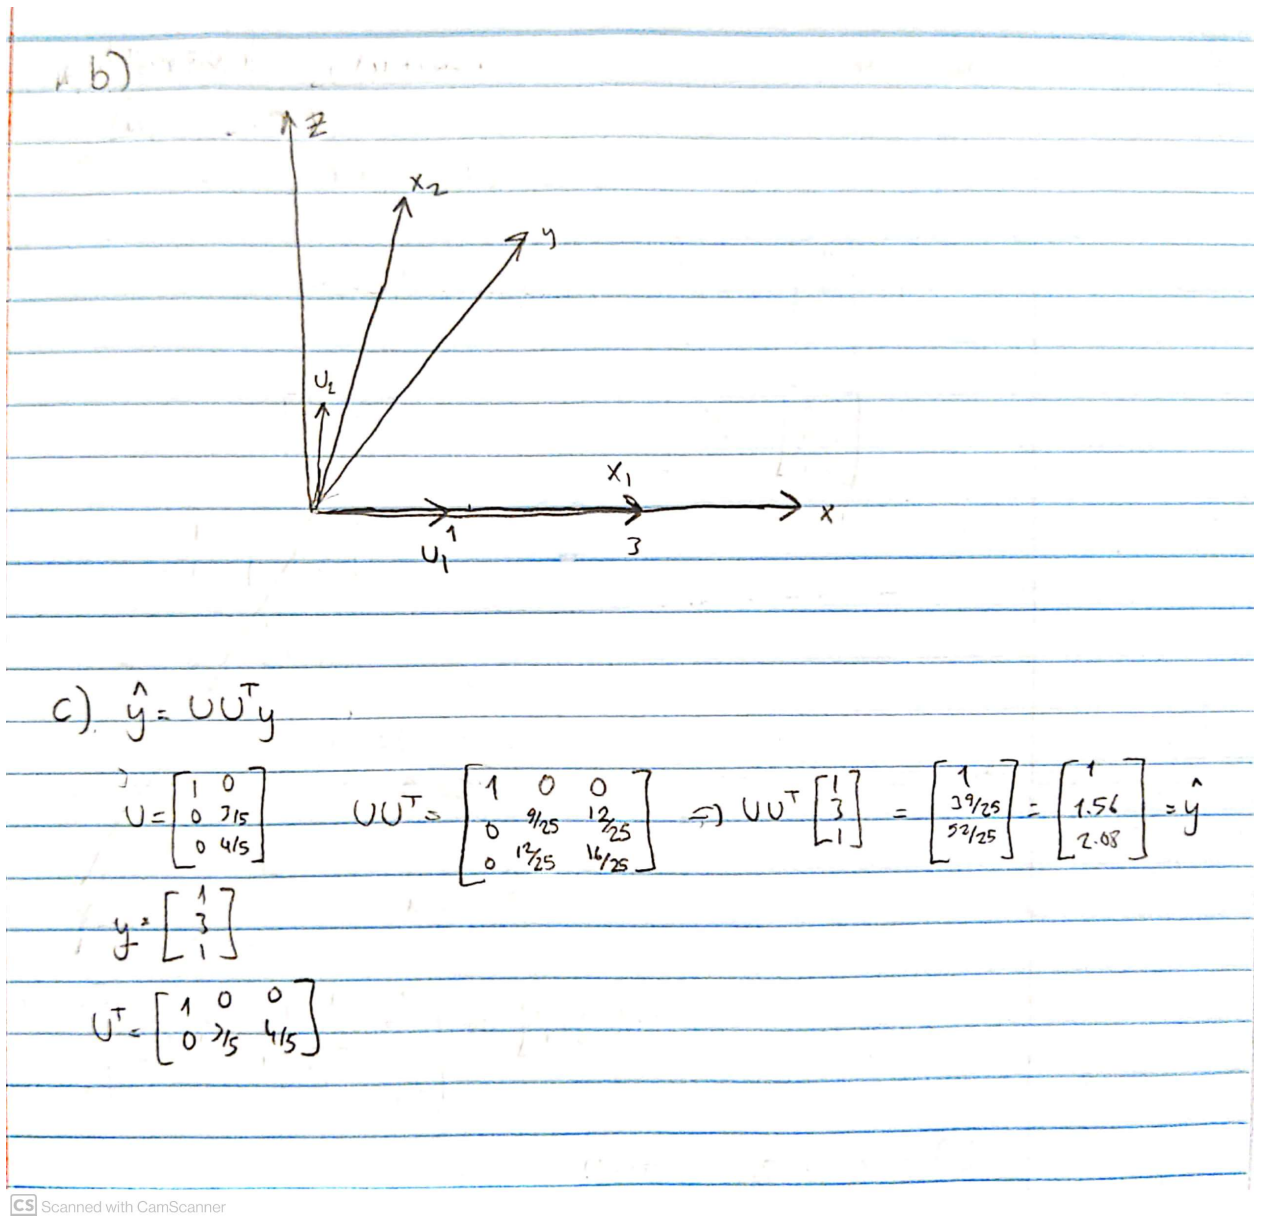 b)
z
x₂
y
U₂
x₁
x
1
U₁
3
c) ŷ = UUᵀy
U = [1 0; 0 3/5; 0 4/5] UUᵀ = [1 0 0; 0 9/25 12/25; 0 12/25 16/25] ⇒ UUᵀ [1; 3; 1] = [1; 39/25; 52/25] = [1; 1.56; 2.08] = ŷ
y = [1; 3; 1]
Uᵀ = [1 0 0; 0 3/5 4/5]
CS Scanned with CamScanner